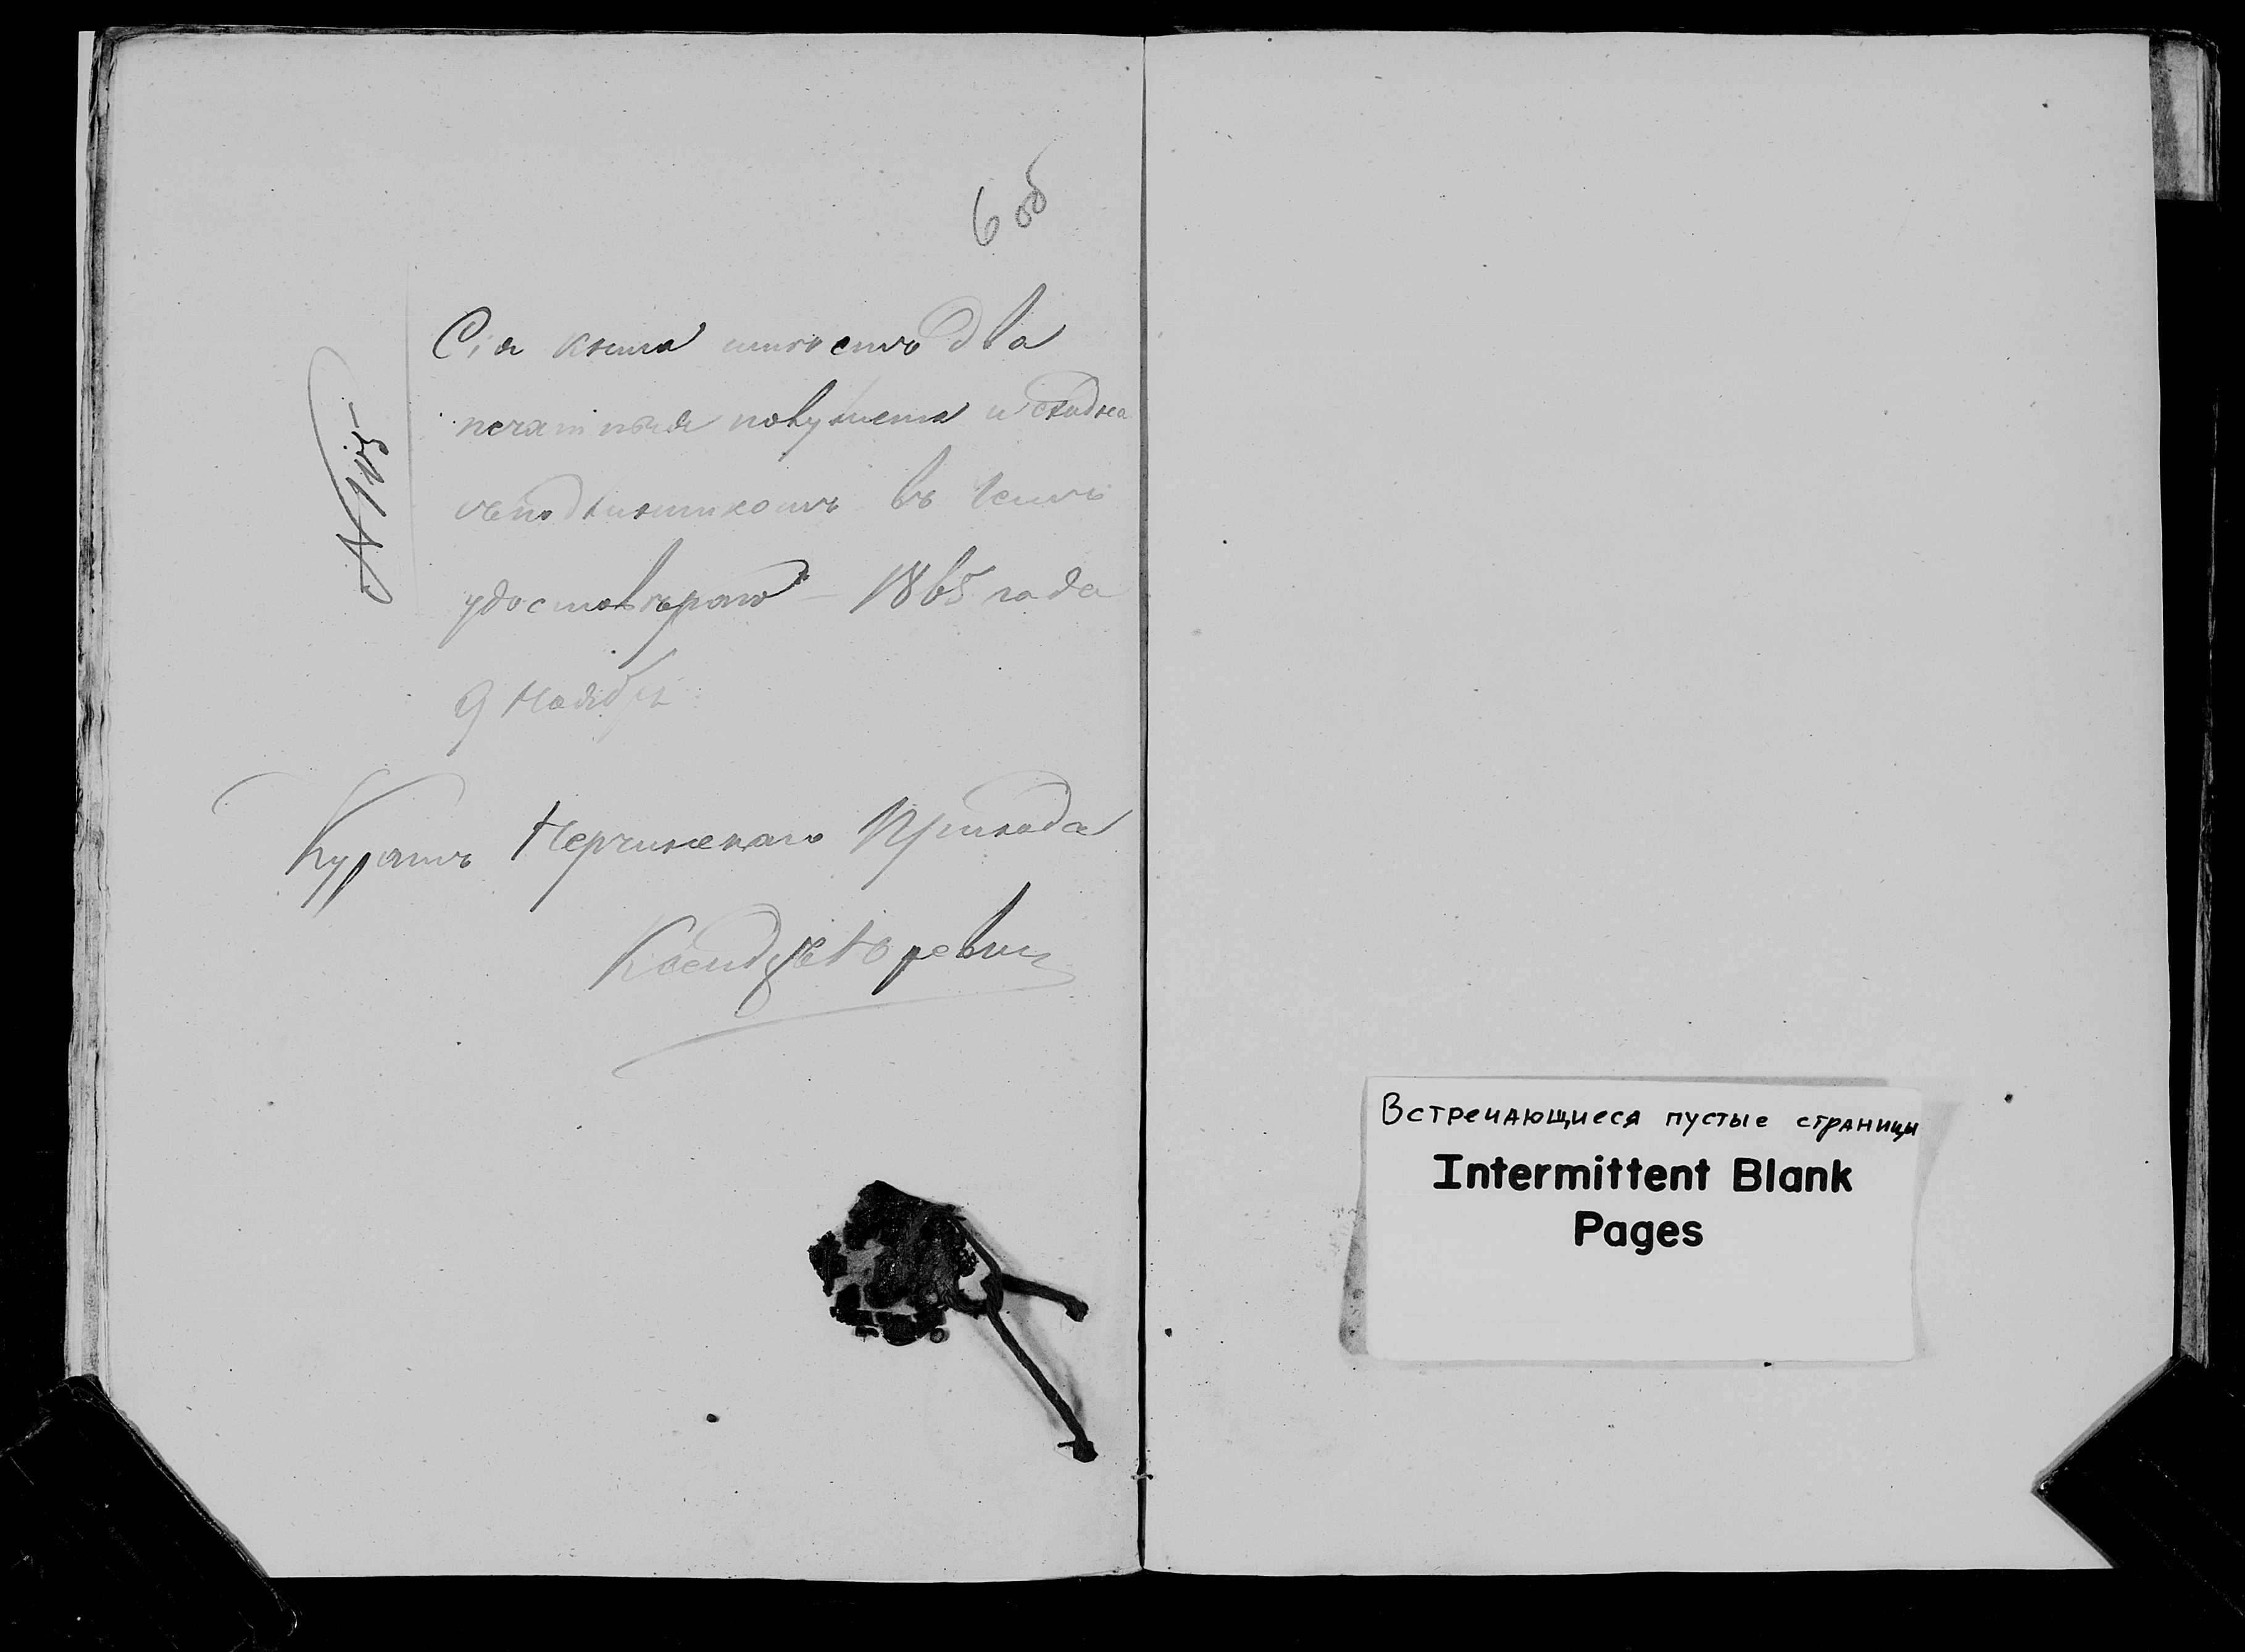 6 об
№ 115
Сія книга имѣетъ два
печатныя документа и сходна
съ подлинникомъ въ чемъ
удостовѣряю – 1865 года
9 Ноября
Куратъ Нерчинскаго Прихода
Ксендзъ
Встречающиеся пустые страницы
Intermittent Blank
Pages